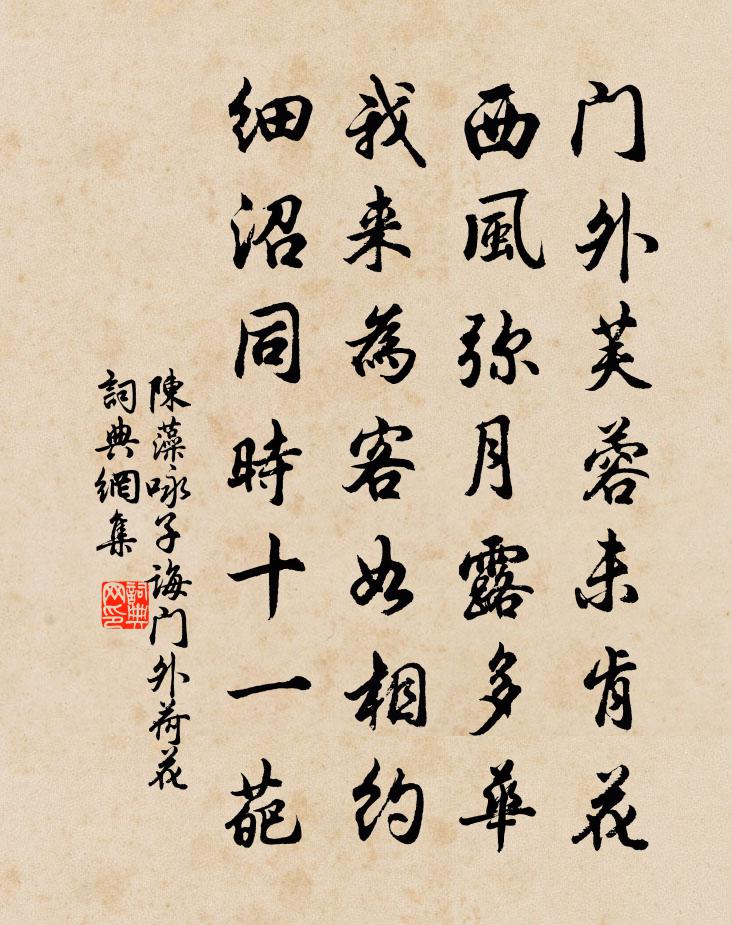 门外芙蓉未肯花
西風弥月露多華
我来為客如相約
细沼同時十一葩
陳藻咏子誨门外荷花
詞典網集
詞典网印